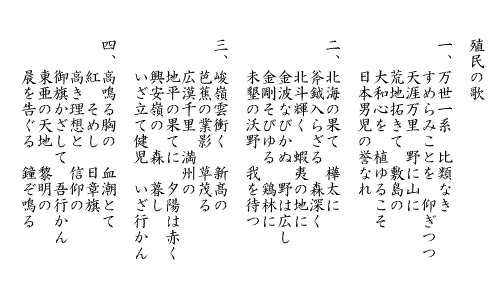 殖民の歌
一、万世一系　比類なき
すめらみことを　仰ぎつつ
天涯万里　野に山に
荒地拓きて　敷島の
大和心を　植ゆるこそ
日本男児の誉なれ
二、北海の果て　樺太に
斧鉞入らざる　森深く
北斗輝く　蝦夷の地に
金波なびかぬ　野は広し
金剛そびゆる　鶏林に
未墾の沃野　我を待つ
三、峻嶺雲衝く　新高の
芭蕉の葉影　草茂る
広漠千里　満州の
地平の果てに　夕陽は赤く
興安嶺の　森　暮し
いざ立て健児　いざ行かん
四、高鳴る胸の　血潮とて
紅　そめし　日章旗
高き理想と　信仰の
御旗かざして　吾行かん
東亜の天地　黎明の
晨を告ぐる　鐘ぞ鳴る